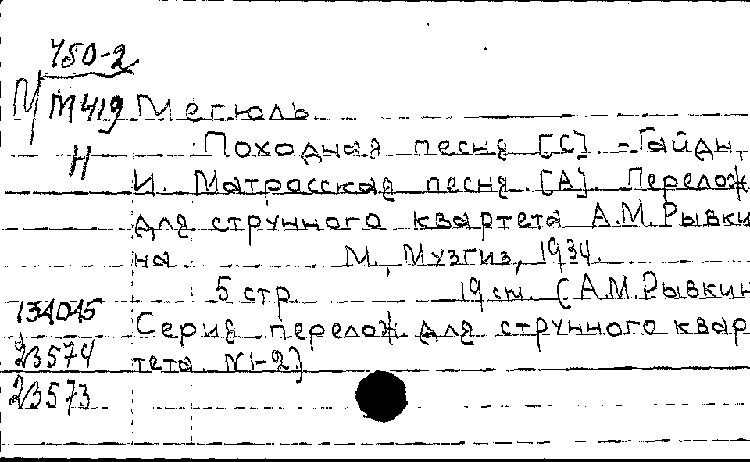 450-2
М419 Мегюль
Н Походная песня [C]. - Гайдн,
И. Матросская песня [A]. Перелож
для струнного квартета А.М. Рывки
на. М., Музгиз, 1934.
5 стр. 19 см. (А.М. Рывкин
134045 Серия перелож. для струнного квар
23574 тета. N1-2)
23573